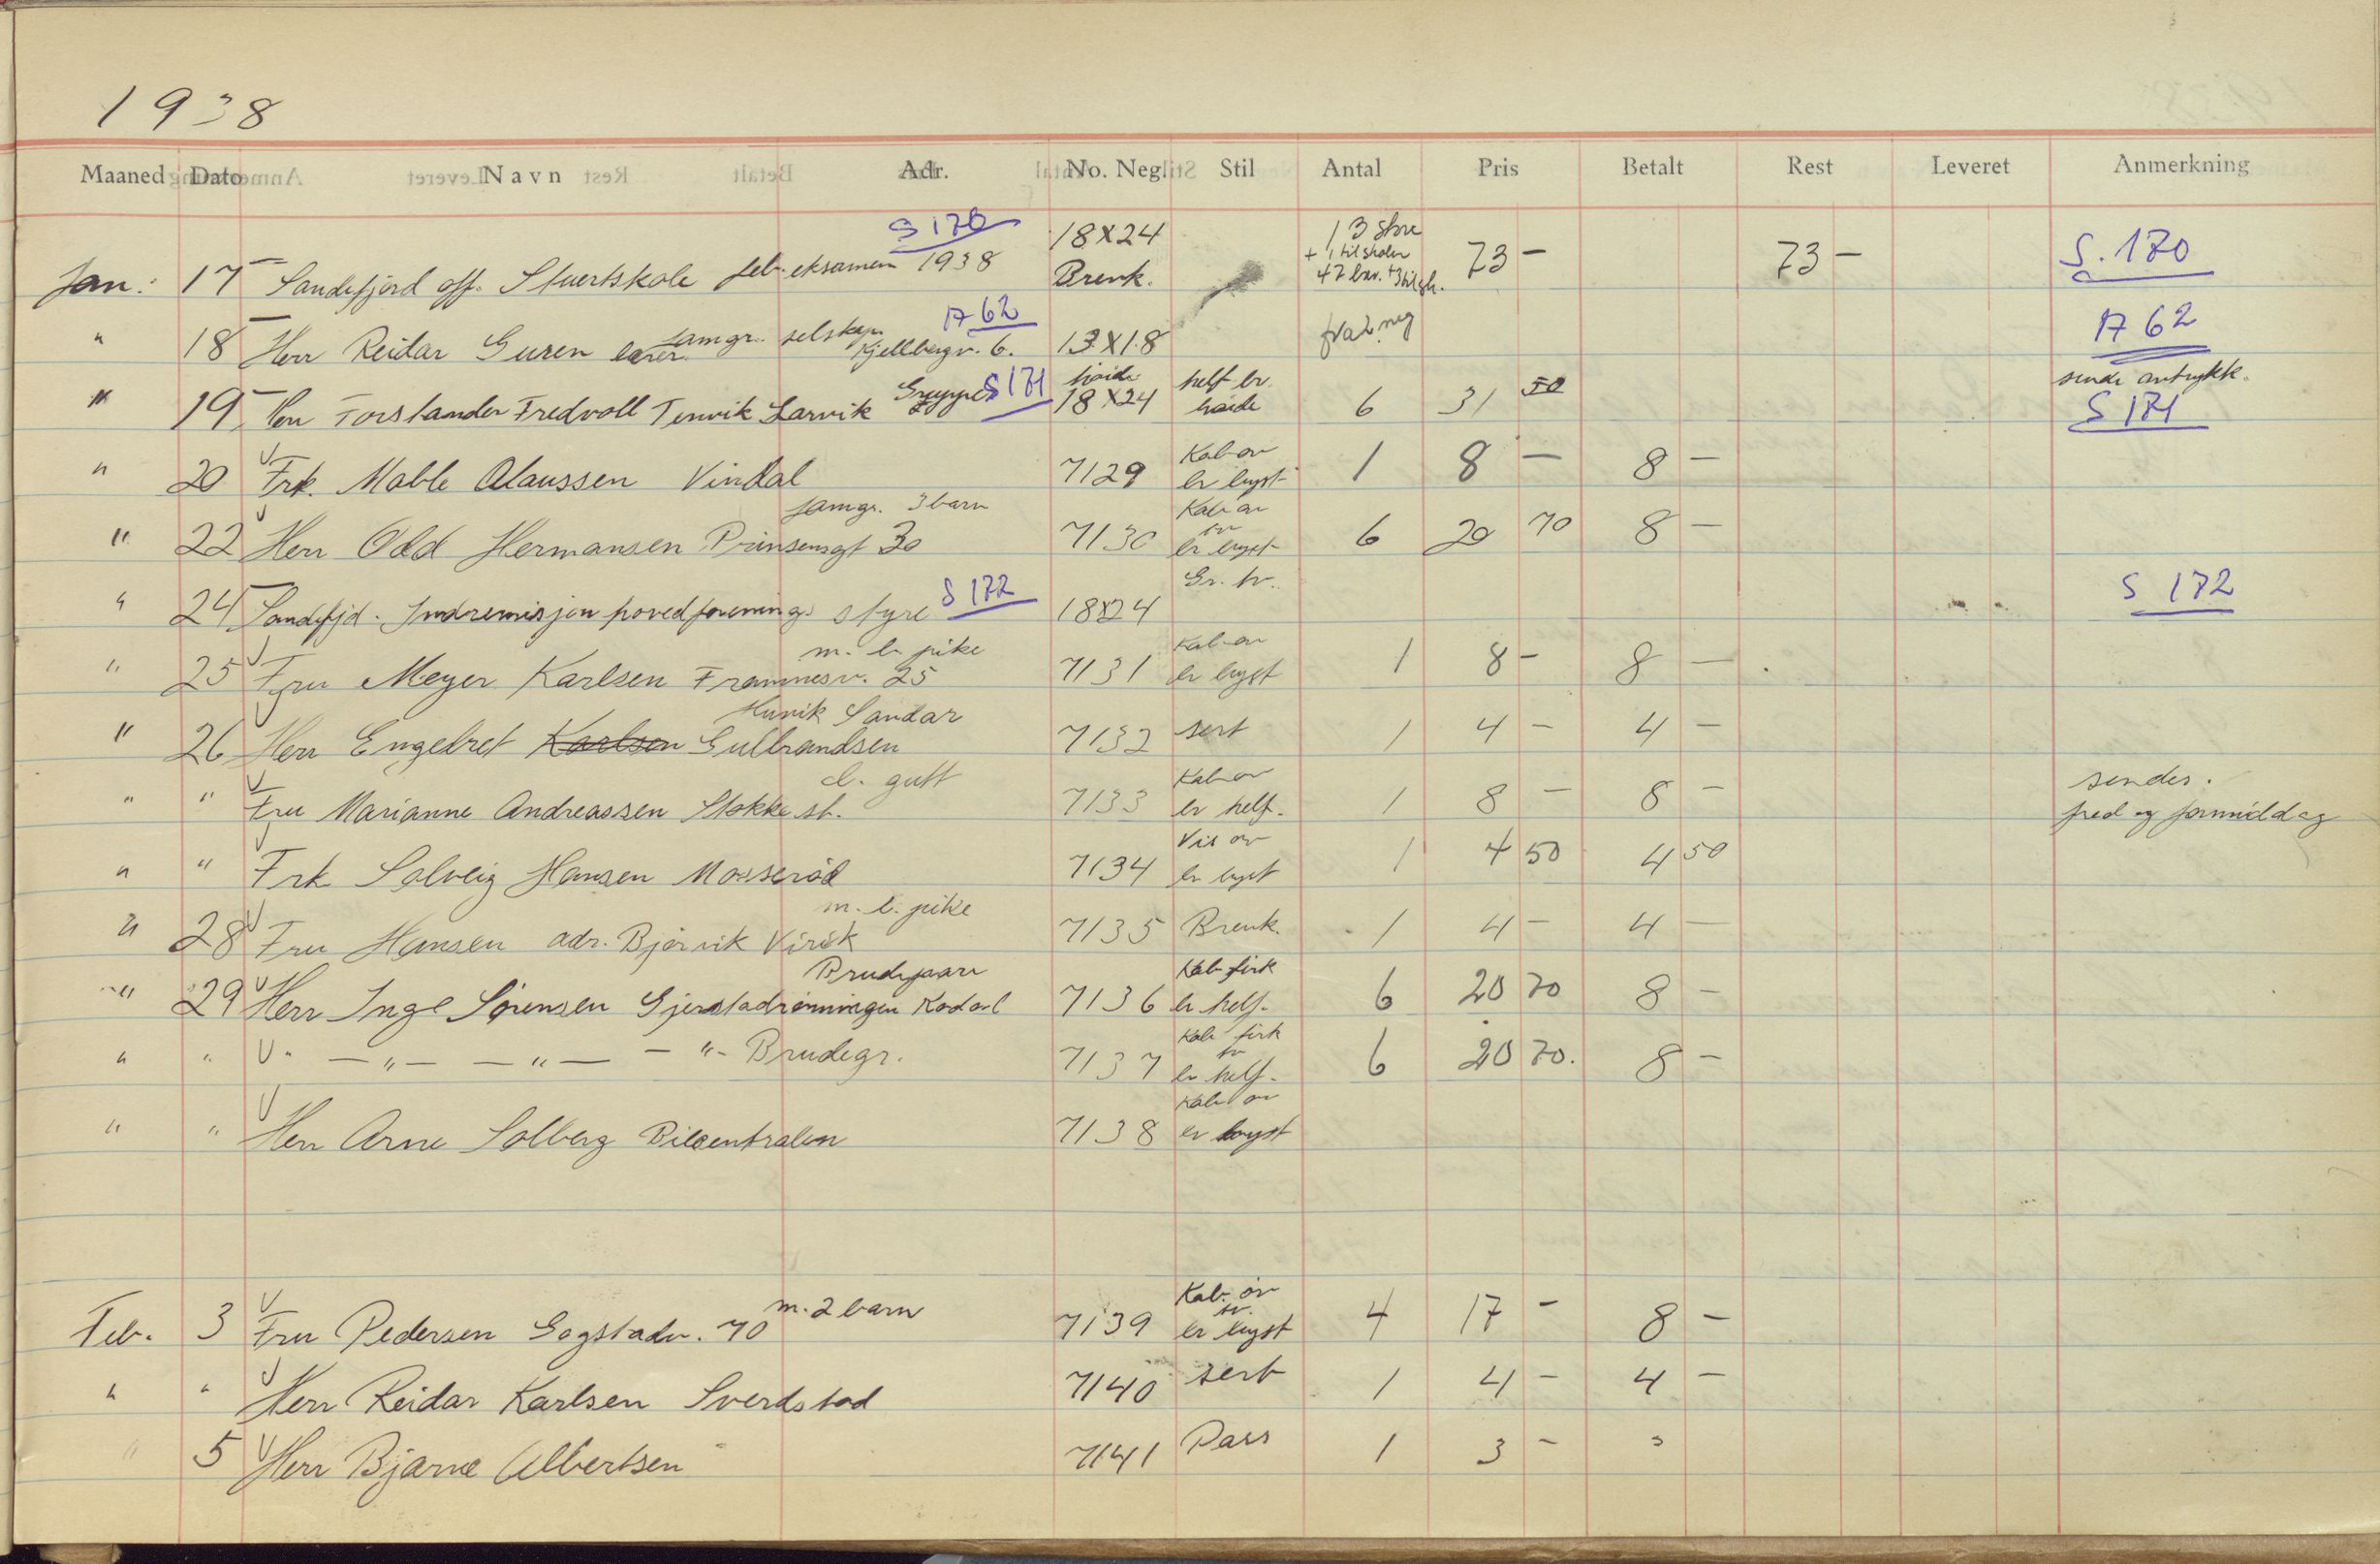 1938
Maaned Dato Navn Adr. No. Negl. Stil Antal Pris Betalt Rest Leveret Anmerkning
S 170 18x24 13 store
+ 1 til skolen
Jan: 17 Sandefjord off. Stuertskole feb. eksamen 1938 Brenk. 73 - 73 - S. 170
A 62
" 18 Herr Reidar Guren samgr. selskap Kjellbergv. 6. 13x18 fra 2 neg A 62
sende avtrykk.
" 19 Herr Forstander Fredvoll Tenvik Larvik Gruppe S 171 18x24 helf br. 6 31 50 S 171
" 20 Frk. Mable Olaussen Vindal 7129 Kab ov br bryst 1 8 - 8 -
samgr. 3 barn
" 22 Herr Odd Hermansen Prinsensgt 30 7130 Kab ov br bryst 6 20 70 8 -
" 24 Sandefjd. Indremisjon hovedforenings styre S 172 18x24 Gr. br. S 172
m. l. pike
" 25 Fru Meyer Karlsen Framnesv. 25 7131 Kab ov br bryst 1 8 - 8 -
Hunik Sandar
" 26 Herr Engelbret Karlsen Gulbrandsen 7132 sert 1 4 - 4 -
l. gutt sendes.
" " Fru Marianne Andreassen Stokke st. 7133 Kab ov br helf. 1 8 - 8 - fred og formiddag
" " Frk Solveig Hansen Mosserød 7134 Vis ov br bryst 1 4 50 4 50
m. l. pike
" 28 Fru Hansen adr. Bjørvik Virik 7135 Brenk. 1 4 - 4 -
Brudepare
" 29 Herr Inge Sørensen Gjerstadrønningen Kodal 7136 Kab firk br helf. 6 20 70 8 -
" " " - " - - " - - " - Brudegr. 7137 Kab firk br helf. 6 20 70. 8 -
" " Herr Arne Solberg Bilsentralen 7138 Kab ov br bryst
m. 2 barn
Feb. 3 Fru Pedersen Gogstadv. 70 7139 Kab. ov br. br bryst 4 17 - 8 -
" " Herr Reidar Karlsen Sverdstad 7140 sert 1 4 - 4 -
" 5 Herr Bjarne Albertsen 7141 Pass 1 3 - 3